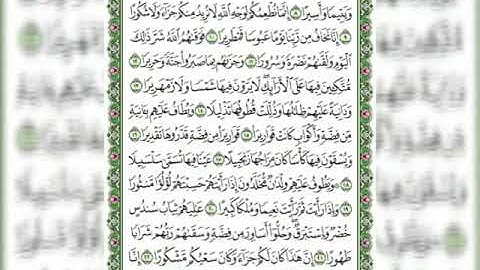 وَيَتِيمًا وَأَسِيرًا ٨ إِنَّمَا نُطْعِمُكُمْ لِوَجْهِ اللَّهِ لَا نُرِيدُ مِنكُمْ جَزَاءً وَلَا شُكُورًا
٩ إِنَّا نَخَافُ مِن رَّبِّنَا يَوْمًا عَبُوسًا قَمْطَرِيرًا ١٠ فَوَقَاهُمُ اللَّهُ شَرَّ ذَٰلِكَ
الْيَوْمِ وَلَقَّاهُمْ نَضْرَةً وَسُرُورًا ١١ وَجَزَاهُم بِمَا صَبَرُوا جَنَّةً وَحَرِيرًا ١٢
مُّتَّكِئِينَ فِيهَا عَلَى الْأَرَائِكِ لَا يَرَوْنَ فِيهَا شَمْسًا وَلَا زَمْهَرِيرًا ١٣
وَدَانِيَةً عَلَيْهِمْ ظِلَالُهَا وَذُلِّلَتْ قُطُوفُهَا تَذْلِيلًا ١٤ وَيُطَافُ عَلَيْهِم بِآنِيَةٍ
مِّن فِضَّةٍ وَأَكْوَابٍ كَانَتْ قَوَارِيرَا ١٥ قَوَارِيرَا مِن فِضَّةٍ قَدَّرُوهَا تَقْدِيرًا ١٦
وَيُسْقَوْنَ فِيهَا كَأْسًا كَانَ مِزَاجُهَا زَنجَبِيلًا ١٧ عَيْنًا فِيهَا تُسَمَّىٰ سَلْسَبِيلًا
١٨ وَيَطُوفُ عَلَيْهِمْ وِلْدَانٌ مُّخَلَّدُونَ إِذَا رَأَيْتَهُمْ حَسِبْتَهُمْ لُؤْلُؤًا مَّنثُورًا
١٩ وَإِذَا رَأَيْتَ ثَمَّ رَأَيْتَ نَعِيمًا وَمُلْكًا كَبِيرًا ٢٠ عَالِيَهُمْ ثِيَابُ سُندُسٍ
خُضْرٌ وَإِسْتَبْرَقٌ وَحُلُّوا أَسَاوِرَ مِن فِضَّةٍ وَسَقَاهُمْ رَبُّهُمْ شَرَابًا
طَهُورًا ٢١ إِنَّ هَٰذَا كَانَ لَكُمْ جَزَاءً وَكَانَ سَعْيُكُم مَّشْكُورًا ٢٢ إِنَّا